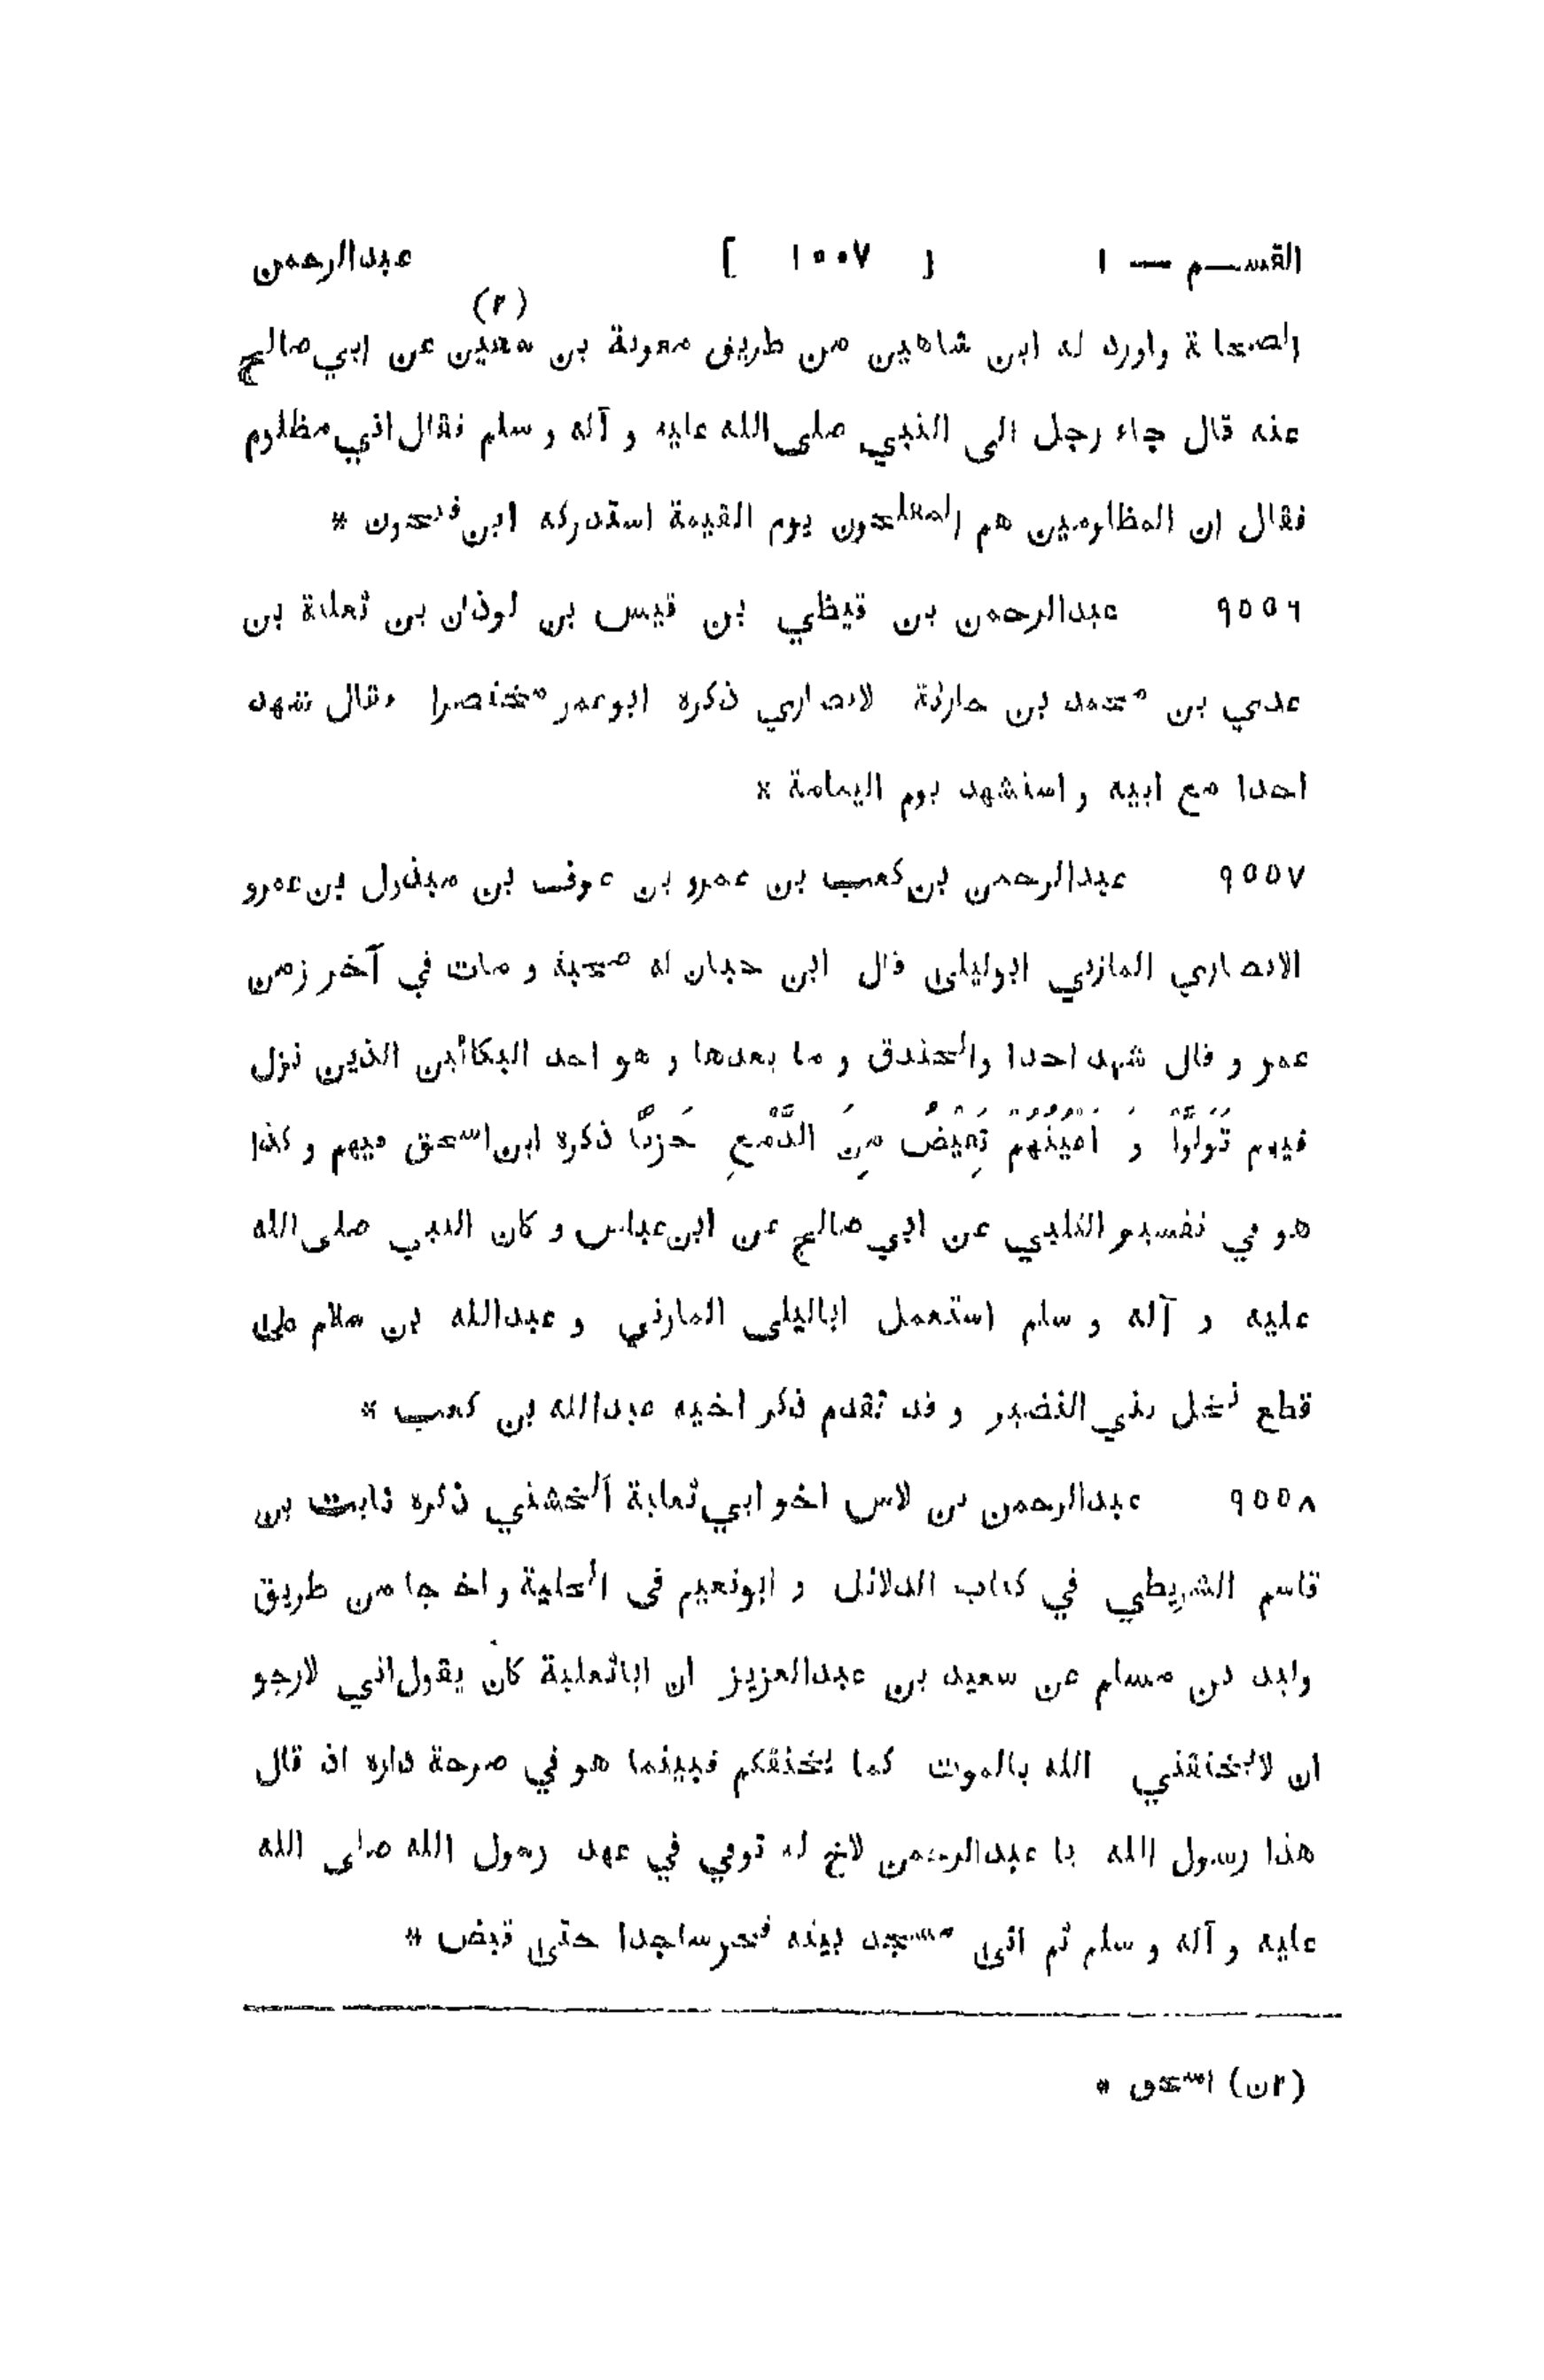 القسم — ١ [ ١٠٠٧ ] عبدالرحمن
(٢)
الصحابة واورد له ابن شاهين من طريق معوية بن معين عن ابي صالح
عنه قال جاء رجل الى النبي صلى الله عليه و آله و سلم فقال اني مظلوم
فقال ان المظلومين هم المفلحون يوم القيمة استدركه ابن فتحون *
٩٥٥٦ عبدالرحمن بن قيظي بن قيس بن لوذان بن ثعلبة بن
عدي بن محمد بن حارثة الانصاري ذكره ابو عمر مختصرا وقال شهد
احدا مع ابيه و استشهد يوم اليمامة *
٩٥٥٧ عبدالرحمن بن كعب بن عمرو بن عوف بن مبذول بن عمرو
الانصاري المازني ابوليلى قال ابن حبان له صحبة و مات في آخر زمن
عمر و قال شهد احدا والخندق و ما بعدها و هو احد البكائين الذين نزل
فيهم تَوَلَّوْا وَ اَعْيُنُهُمْ تَفِيْضُ مِنَ الدَّمْعِ حَزَنًا ذكره ابن اسحق فيهم و كذا
هو في تفسير الكلبي عن ابي صالح عن ابن عباس و كان النبي صلى الله
عليه و آله و سلم استعمل اباليلى المازني و عبدالله بن سلام على
قطع نخل بني النضير و قد تقدم ذكر اخيه عبدالله بن كعب *
٩٥٥٨ عبدالرحمن بن لاس اخو ابي ثعلبة الخشني ذكره ثابت بن
قاسم الشريطي في كتاب الدلائل و ابونعيم في الحلية و اخرجا من طريق
وليد بن مسلم عن سعيد بن عبدالعزيز ان اباثعلبة كان يقول اني لارجو
ان لايخنقني الله بالموت كما يخنقكم فبينما هو في صرحة داره اذ قال
هذا رسول الله يا عبدالرحمن لاخ له توفي في عهد رسول الله صلى الله
عليه و آله و سلم ثم اتى مسجد بيته فخر ساجدا حتى قبض *
(٢ن) اسحق *